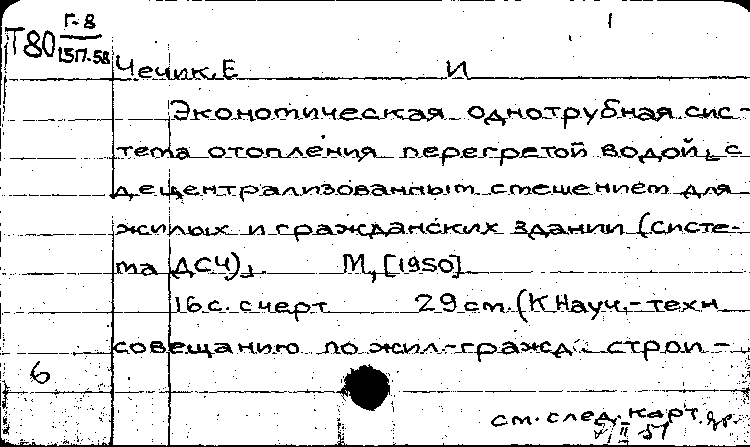 Т80 Г-8
1517-58
1
Чечик, Е И
Экономическая однотрубная сис-
тема отопления перегретой водой, с
децентрализованным смешением для
жилых и гражданских здании (систе-
ма ДСЧ), М, [1950]
16 с. с черт 29 см. (К Науч.-техн
совещанию по жил-гражд. строи-
6
см. след. карт.